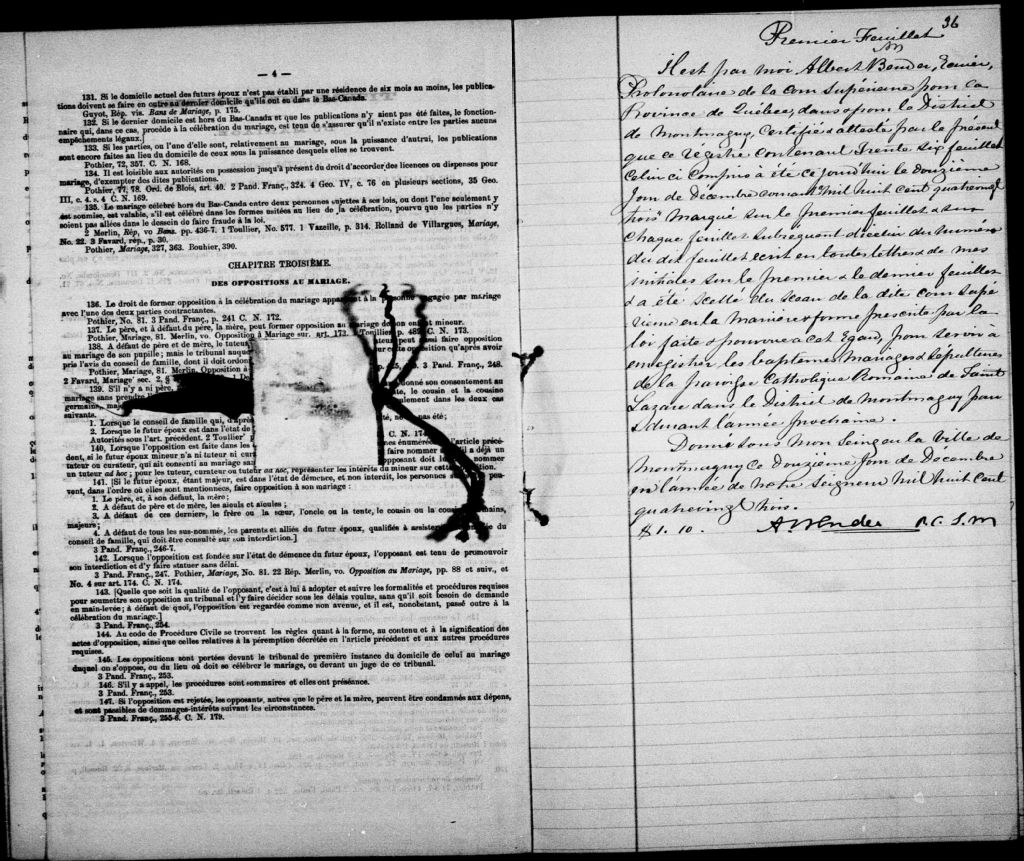 — 4 —
131. Si le domicile actuel des futurs époux n'est pas établi par une résidence de six mois au moins, les publica-
tions doivent se faire en outre au dernier domicile qu'ils ont eu dans le Bas-Canada.
Guyot, Rép. vis. Bans de Mariage, p. 175.
132. Si le dernier domicile est hors du Bas-Canada et que les publications n'y aient pas été faites, le fonction-
naire qui, dans ce cas, procède à la célébration du mariage, est tenu de s'assurer qu'il n'existe entre les parties aucuns
empêchements légaux.]
133. Si les parties, ou l'une d'elle sont, relativement au mariage, sous la puissance d'autrui, les publications
sont encore faites au lieu du domicile de ceux sous la puissance desquels elles se trouvent.
Pothier, 72, 357. C. N. 168.
134. Il est loisible aux autorités en possession jusqu'à présent du droit d'accorder des licences ou dispenses pour
mariage, d'exempter des dites publications.
Pothier, 77, 78. Ord. de Blois, art. 40. 2 Pand. Franç., 324. 4 Geo. IV, c. 76 en plusieurs sections, 35 Geo.
III, c. 4. s. 4 C. N. 169.
135. Le mariage célébré hors du Bas-Canda entre deux personnes sujettes à ses lois, ou dont l'une seulement y
est soumise, est valable, s'il est célébré dans les formes usitées au lieu de la célébration, pourvu que les parties n'y
soient pas allées dans le dessein de faire fraude à la loi.
2 Merlin, Rép, vo Bans. pp. 436-7. 1 Toullier, No. 577. 1 Vazeille, p. 314. Rolland de Villargues, Mariage,
No. 22. 3 Favard, rép., p. 30.
Pothier, Mariage, 327, 363. Rouhier, 390.
CHAPITRE TROISIÈME.
DES OPPOSITIONS AU MARIAGE.
136. Le droit de former opposition à la célébration du mariage appartient à la personne engagée par mariage
avec l'une des deux parties contractantes.
Pothier, No. 81. 3 Pand. Franç., p. 241 C. N. 172.
137. Le père, et à défaut du père, la mère, peut former opposition au mariage de son enfant mineur.
Pothier, Mariage, 81. Merlin, vo. Opposition à Mariage sur. art. 173. Toullier, p. 487 C. N. 173.
138. A défaut de père et de mère, le tuteur peut aussi faire opposition
au mariage de son pupille; mais le tribunal auquel cette opposition qu'après avoir
pris l'avis du conseil de famille, dont il doit ordonner
Pothier, Mariage, 81. Merlin, Opposition à 3 Pand. Franç., 248.
2 Favard, Mariage sec. 2, §
139. S'il n'y a ni père, donné son consentement au
mariage sans prendre le cousin et la cousine
germains, maj seulement dans les deux cas
suivants.
1. Lorsque le conseil de famille qui, d'après pas été;
2. Lorsque le futur époux est dans l'état de
Autorités sous l'art. précédent. 2 Toullier C. N. 174
140. Lorsque l'opposition est faite dans les l'article précé-
dent, si le futur époux mineur n'a ni tuteur ni cu faire nommer déjà un
tuteur ou curateur, qui ait consenti au mariage san opposant doit nommer
un tuteur ad hoc; pour les tuteur, curateur ou tuteur ad hoc, représenter les intérêts du mineur sur cette opposition.
141. [Si le futur époux, étant majeur, est dans l'état de démence, et non interdit, les personnes peu-
vent, dans l'ordre où elles sont mentionnées, faire opposition à son mariage :
1. Le père, et, à son défaut, la mère;
2. A défaut de père et de mère, les aïeuls et aïeules;
3. A défaut de ces derniers, le frère ou la sœur, l'oncle ou la tante, le cousin ou la cousine germains,
majeurs;
4. A défaut de tous les sus-nommés, les parents et alliés du futur époux, qualifiés à assister du
conseil de famille, qui doit être consulté sur son interdiction.]
3 Pand. Franç., 246-7.
142. Lorsque l'opposition est fondée sur l'état de démence du futur époux, l'opposant est tenu de promouvoir
son interdiction et d'y faire statuer sans délai.
3 Pand. Franç., 247. Pothier, Mariage, No. 81. 22 Rép. Merlin, vo. Opposition au Mariage, pp. 88 et suiv., et
No. 4 sur art. 174. C. N. 174.
143. [Quelque soit la qualité de l'opposant, c'est à lui à adopter et suivre les formalités et procédures requises
pour soumettre son opposition au tribunal et l'y faire décider sous les délais voulus, sans qu'il soit besoin de demande
en main-levée; à défaut de quoi, l'opposition est regardée comme non avenue, et il est, nonobstant, passé outre à la
célébration du mariage.]
3 Pand. Franç., 254.
144. Au code de Procédure Civile se trouvent les règles quant à la forme, au contenu et à la signification des
actes d'opposition, ainsi que celles relatives à la péremption décrétée en l'article précédent et aux autres procédures
requises.
145. Les oppositions sont portées devant le tribunal de première instance du domicile de celui au mariage
duquel on s'oppose, ou du lieu où doit se célébrer le mariage, ou devant un juge de ce tribunal.
3 Pand. Franç., 253.
146. S'il y a appel, les procédures sont sommaires et elles ont préséance.
3 Pand. Franç., 253.
147. Si l'opposition est rejetée, les opposants, autres que le père et la mère, peuvent être condamnés aux dépens,
et sont passibles de dommages-intérêts suivant les circonstances.
3 Pand. Franç., 255-6. C. N. 179.
36
Premier Feuillet
Il est par moi Albert Bender, Ecuier,
Protonotaire de la Cour Supérieure pour la
Province de Québec, dans & pour le District
de Montmagny, Certifié & attesté par le présent
que ce régistre contenant Trente six feuillets
Celui ci Compris a été ce jourd'hui le douzième
jour de Décembre courant mil huit cent quatrevingt
trois Marqué sur le premier feuillet & sur
chaque feuillet subséquent d'icelui du numéro
du dit feuillet écrit en toutes lettres & de mes
initiales sur le premier & le dernier feuillet
& a été scellé du sceau de la dite cour supé
rieure en la manière & forme prescrite par la
loi faite & pourvue a cet Egard, pour servir à
enregistrer les baptêmes Mariages & Sépultures
de la paroisse Catholique Romaine de Saint
Lazare dans le District de Montmagny pen
dant l'année prochaine.
Donné sous mon Seing en la Ville de
Montmagny ce Douzième jour de Decembre
en l'année de notre Seigneur mil huit cent
quatrevingt trois.
$1.10. A Bender P.C.S.M